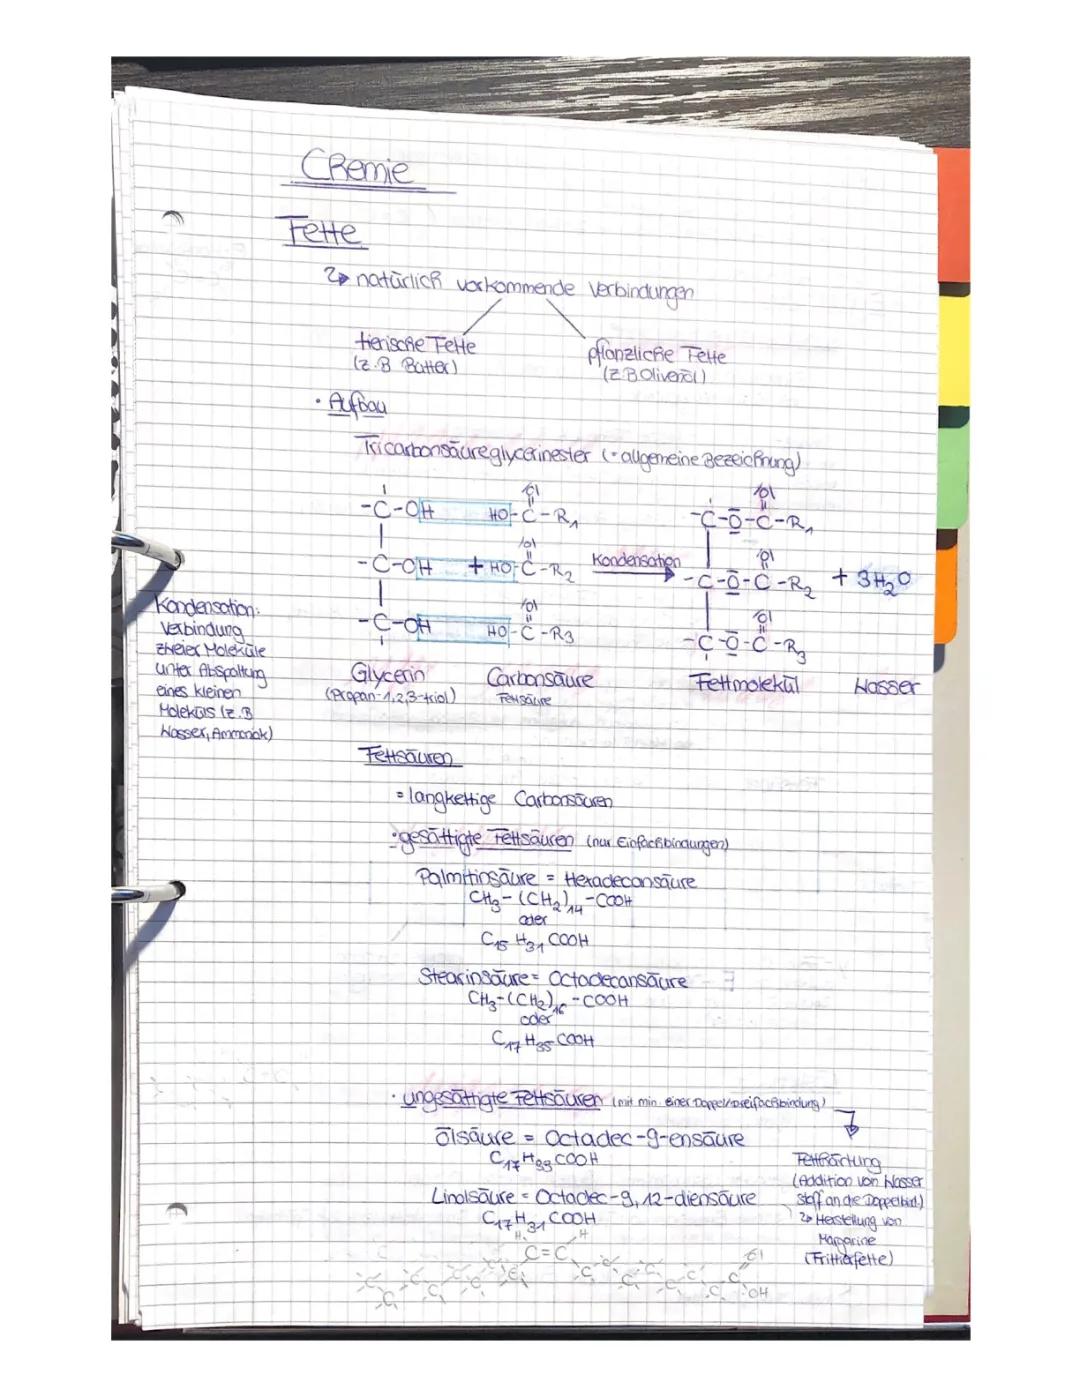 Chemie
Fette
↳ natürlich vorkommende Verbindungen
tierische Fette
(z.B Butter)
pflanzliche Fette
(z.B Olivenöl)
• Aufbau
Tricarbonsäureglycerinester (= allgemeine Bezeichnung)
-C-OH HO-C-R₁ -C-O-C-R₁
-C-OH + HO-C-R₂ Kondensation -C-O-C-R₂ + 3H₂O
-C-OH HO-C-R₃ -C-O-C-R₃
Glycerin Carbonsäure Fettmolekül Wasser
(Propan-1,2,3-triol) Fettsäure
Kondensation:
Verbindung
zweier Moleküle
unter Abspaltung
eines kleinen
Moleküls (z.B
Wasser, Ammoniak)
Fettsäuren
= langkettige Carbonsäuren
• gesättigte Fettsäuren (nur Einfachbindungen)
Palmitinsäure = Hexadecansäure
CH₃-(CH₂)₁₄-COOH
oder
C₁₅H₃₁COOH
Stearinsäure = Octadecansäure
CH₃-(CH₂)₁₆-COOH
oder
C₁₇H₃₅COOH
• ungesättigte Fettsäuren (mit min. einer Doppel/Dreifachbindung)
Ölsäure = Octadec-9-ensäure
C₁₇H₃₃COOH
Linolsäure = Octadec-9,12-diensäure
C₁₇H₃₁COOH
Fetthärtung
(Addition von Wasser
stoff an die Doppelbind.)
↳ Herstellung von
Margarine
(Frittierfette)
H H
C=C
OH